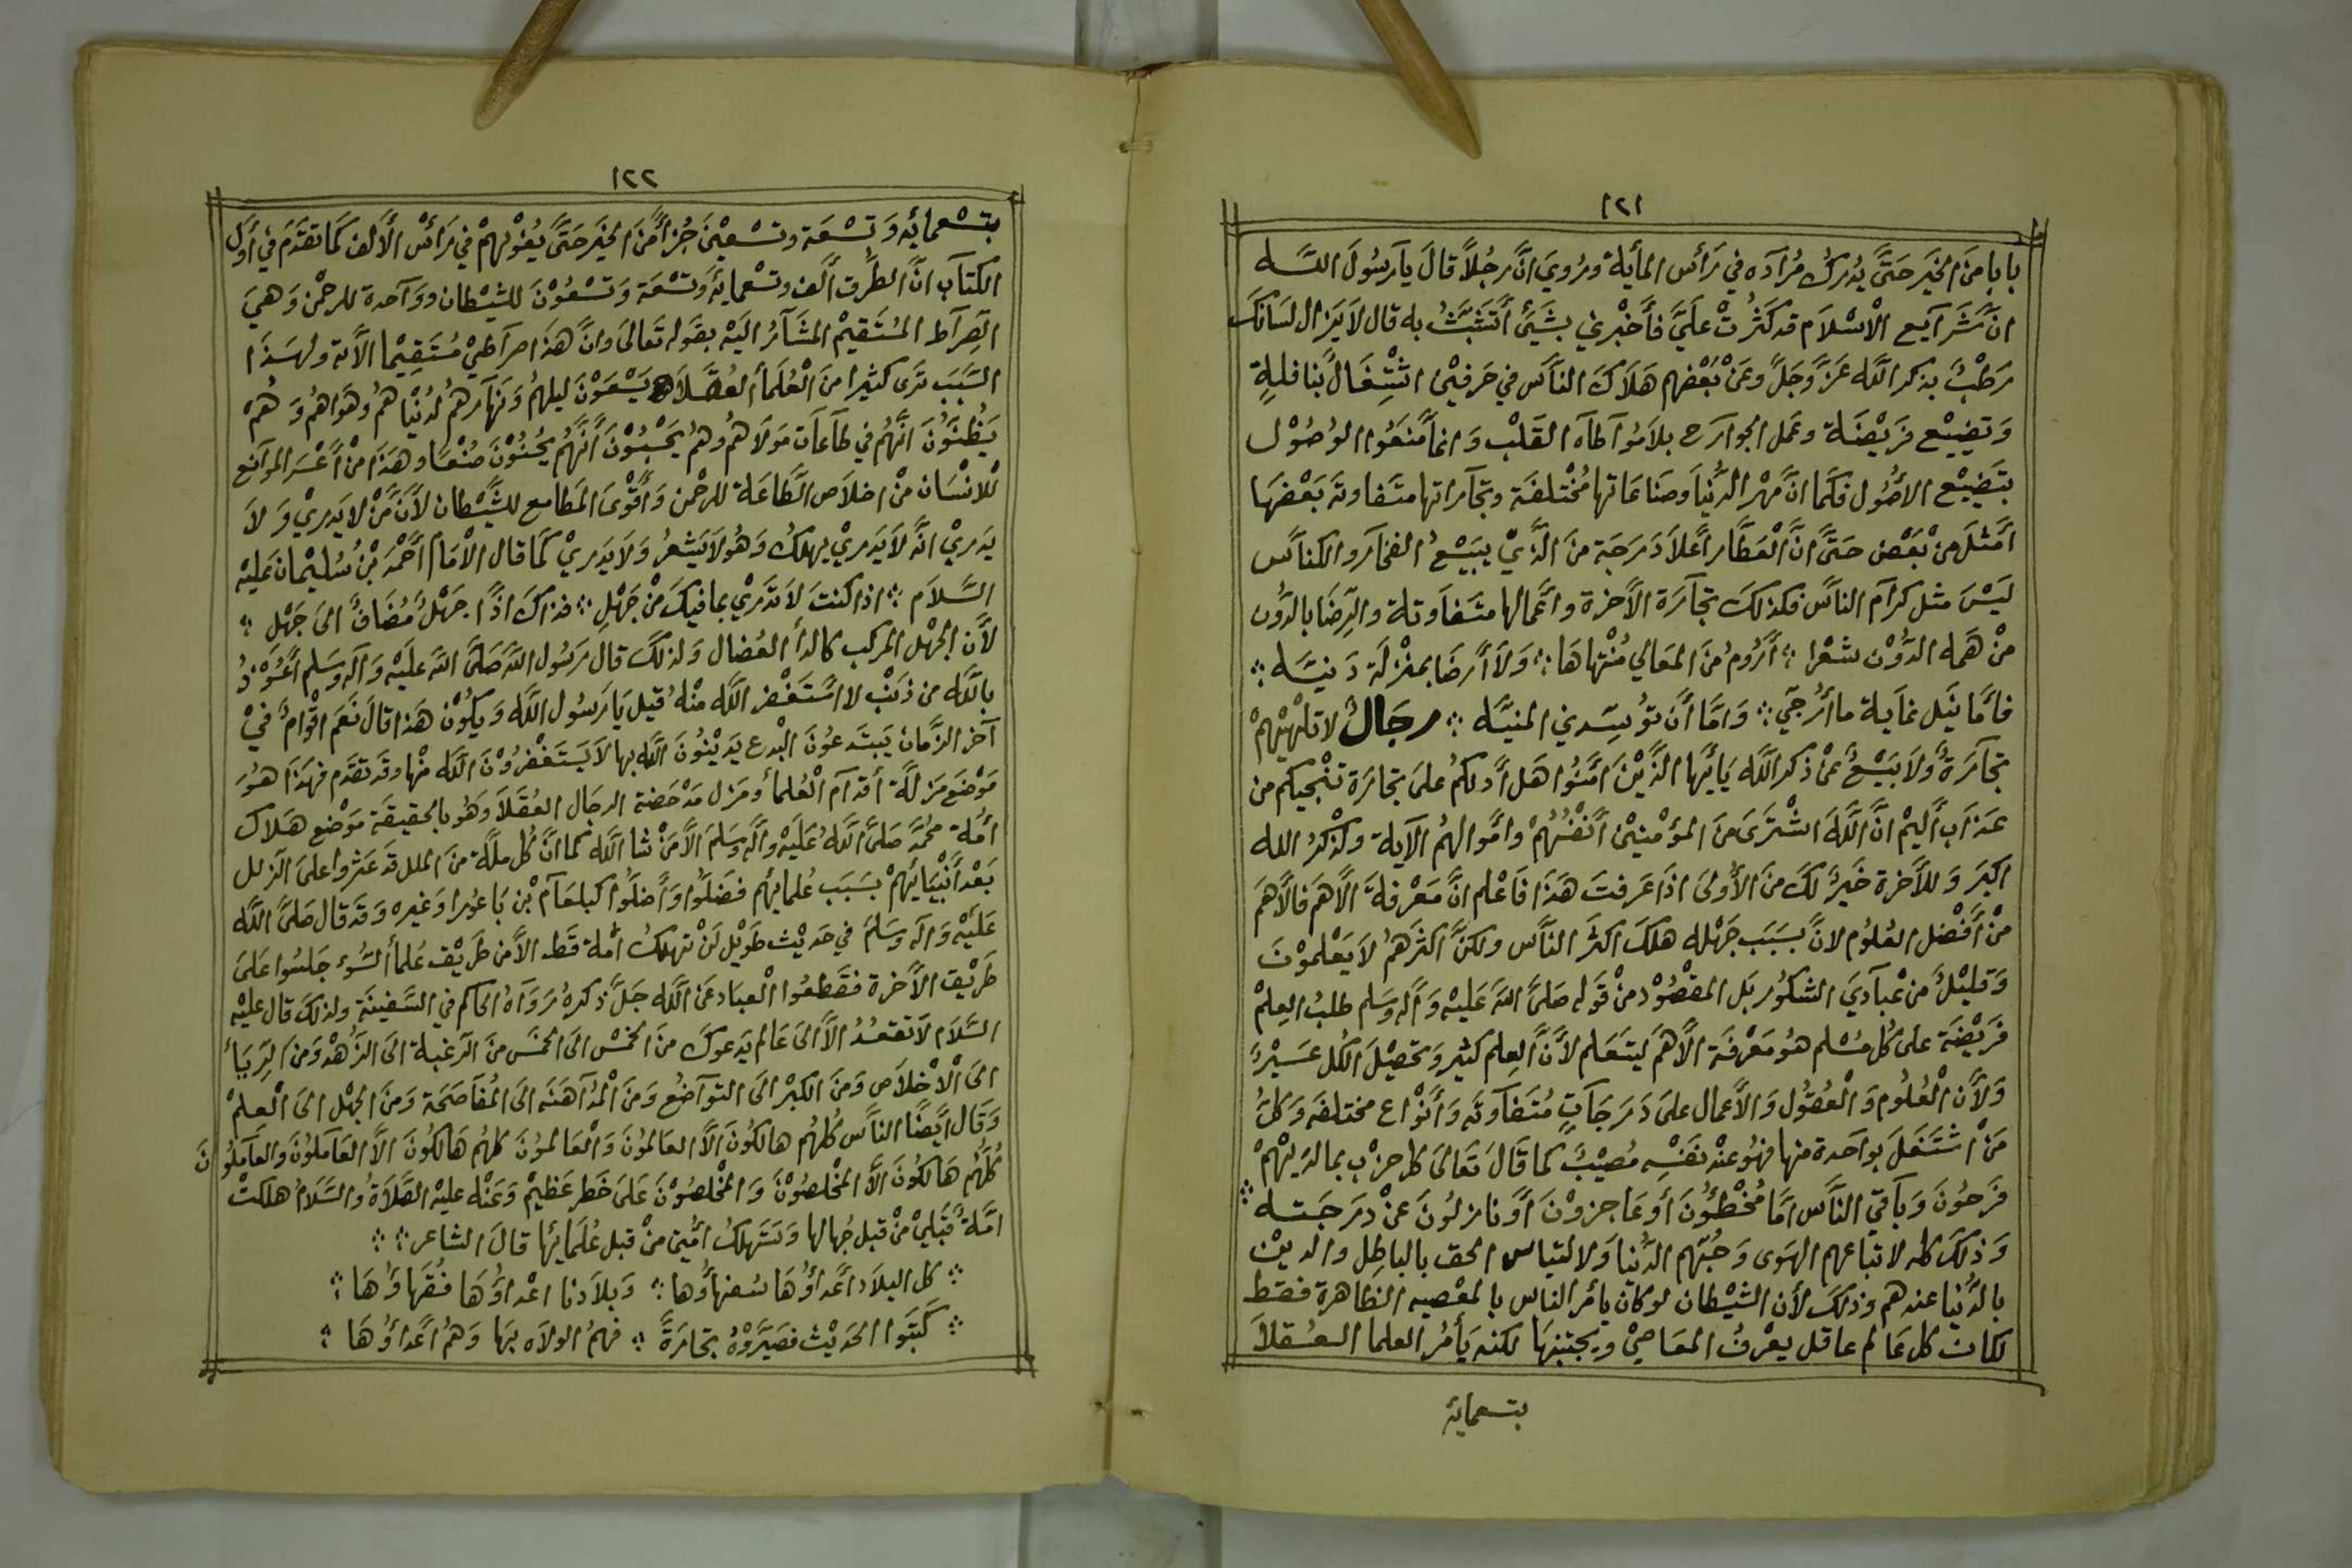 ١٢١
بابا من الخير حَتَّى يُدرك مُرَادَه في رَأس المأية ورُويَ انَّ رجُلاً قالَ يا رَسُولَ اللّه
انَّ شَرَايَع الْاسْلَام قد كثُرتْ عَلَيَّ فأَخْبرني بشَيْ أَتَشَبَّثُ به قال لاَ يَزال لسَانكَ
رَطْبُ بذكر اللَّه عَزَّ وَجَلَّ وعَنْ بَعْضهم هَلَاكَ النَّاس في حَرفَيْن اشْتِغَالُ بنا فلةٍ
وَتضييْع فرَيْضَة وعَمل الجوارح بلا مُواَطاَه القَلْب وَانماَ مُنعَوُا الوُصُوْل
بتَضْييْع الاصُول فكَما انَّ مهْر الدُّنياَ وصَناعَاتها مُخْتلفَة وتجَاراتها متفاوته بَعْضهَا
أمثلَ منْ بَعْض حَتَّى انَّ الْعَطَّار اَعْلاَ دَرَجَة منَ الَّذيْ يبَيْعُ الفخار والكناَّس
ليَسْ مثل كرَام النَّاس فكذلكَ تجَارَة الأخرة واعْمالها متفَاوتة والرِضَا بالدُّون
منْ هَمه الدُّوْن شعْرا ؞ أرُومُ منَ المعَالي مُنْتهَاهَا ؞ وَلاَ أرضَا بمنْزلَة دَنيَّه ؞
فامَّا نَيل غاَية ما أرُجّي ؞ وَامَّا أن توُسِّدني المنيَّه ؞ رجَالُ لا تلْهيْهمْ
تجَارَةُ وَلاَ بَيْعُ عنْ ذكر اللَّه يَا أيُّها الذَّيْنَ امَنُوا هَل أدلكمُ علىَ تجارَة تنْجيكم من
عَذاَب أليمْ انَّ اللَّهَ اشْترَىَ منَ المؤمْنيْن أنْفُسُهُمْ وامْوالهمُ الآية ولذْكرُ الله
اكبَر وَللأخرة خَيْرُ لكَ منَ الأُولىَ اذَا عَرفتَ هَذاَ فاَعْلم انَّ مَعْرفةَ الأهَم فالأهَم
منْ أفْضل العُلوُم لانَّ بسَبَب جَهْله هلكَ اكثر النَّاس ولكنَّ اكثرَهمُ لاَ يَعْلموْنَ
وَقليْلُ من عْباَديَ الشكُور بَل المقْصُوْد منْ قَوْله صَلىَّ اللَه عَليْه وَاَله وسَلم طلبُ العِلمْ
فَريْضَة علىَ كُل مُسْلم هوُ معَرْفة الأهَم ليَتعَلم لأنَّ العِلم كثير وَتحصْيْلَ الكُل عَسيْرُ
وَلأن الْعُلُوم وَالْعُقُول وَالأعمال علىَ دَرَجَاتٍ مُتَفاَوتَه وَأنْواع مختلفه وَكلُ
مَنْ اشْتَغَلَ بواَحدة منها فهُو عنْدَ نفَسْه مُصيْبُ كما قَالَ تعَالىَ كل حزْب بما لديْهمْ
فرَحُونَ وَبَاقي النَّاس امَّا مُخْطئُونَ أو عَاجزوْنَ أوْ نازلُونَ عنْ درَجَته ؞
وَذلكَ كله لاتبَاعهم الهَوى وَحُبّهم الدُّنياَ وَلالتبَاس الحق بالباطِل والديْن
بالدُّنيا عندهم وذلكَ لأن الشيْطان لو كان يأمر الناس بالمعْصيه الظاهرة فقط
لكان كل عَالم عاقل يعْرفُ المعَاصيْ ويجتنبَها لكنه يَأمُر العلما العُقلاَ
بتسعمايَه
١٢٢
بتسْعمايَه وَتسْعَة وتسْعيْنَ جُزأ منَ الخيَر حَتىَّ يغوْيهمْ في رَأسْ الألف كمَا تقدَم في أوَّل
الكتاَب انَّ الطرُق ألف وتسْعمائَه وَتسْعَة وَتسْعُوْنَ للشيْطان ووَاحدة للرحْمن وَهيَ
الصِرَاط المُسْتَقيمْ المشَار اليَه بقَوله تَعَالىَ وانَّ هَذَا صرَاطيْ مُسْتَقيْما الآية ولهَذَا
السَّبَب ترَى كثيرا منَ الْعُلمَأ الفُضَلاَ يَسْعَوْنَ ليلهمُ وَنهَارهمُ لدُنْياهمُ وهَواهمُ وَهمُ
يَظنُّونَ انَّهمُ في طَاعَات مَوْلاَهمُ وهمُ يَحْسبُوْنَ أنَّهمُ يحُسنُوْنَ صُنْعًا وهَذَا منْ أعْسَر الموَانع
للانْسَان منْ اخلاَص الطَّاعَة للرحْمن وَأقْوىَ المَطامع للشَّيْطان لأنَّ مَنْ لا يَدريْ وَلاَ
يَدريْ انَّه لاَ يَدريْ يهلكُ وَهُو لاَ يَشعرُ وَلاَ يَدريْ كمَا قال الْامَام أحْمدَ بْنُ سُليْمانَ عَليْه
السَّلاَم ؞ اذا كنتَ لاَ تدَريْ بما فيكَ منْ جَهْلِ ؞ فذاكَ اذًا جَهْلُ مُضَافُ الىَ جَهْلِ ؞
لأن الجهْل المركب كالدأ العُضال وَلذلكَ قال رَسُول اللَّه صَلىَّ اللَه عَليَه وَآله وسَلم أعُوْذُ
باللَّه من ذنَبْ لا اسْتَغفر اللَّه منْهُ قيل يَا رَسُول اللَّه وَيكُوْن هَذا قالَ نَعَم اقْوامُ فيْ
آخر الزَّمان يَبتدعُونَ البْدع يَديْنُونَ اللَّه بها لاَ يَسْتَغفرُوْنَ اللَّه منْها وقَد تقدَم فهَذَا هوُ
مَوْضَع مَزلَّة أقدَام الْعُلمأ ومَزل مدْحَضة الرجَال العُقَلاَ وَهُو بالحقيقَة مَوْضع هَلاَك
أمَّة محُمَّد صَلىَّ اللَّهُ عَليَه وَآله وسَلمَ الأَّ مَنْ شأ اللَّه كما انَّ كُل ملَّة منَ الملل قَد عَثروا علىَ الزلل
بَعْد أنْبيَائهمْ بسَبَب عُلمائهم فضَلوُا وَأضلوُا كبلعَام بْن بَاعُورا وَغيره وَقدَ قال صَلىَّ اللَّه
عَليَه وَاله وسَلمَ في حَديْث طوَيْل لَنْ تهلكُ أمَّة قَط الأَّ من طَريْق عُلمأ السُّوء جَلسُوا علىَ
طَريْق الأَخرة فقَطعُوا الْعبَاد عَن اللَّه جَلَّ ذكرهُ رَوَاهُ الحاكم في السَّفينَة ولذلكَ قال عَليْه
السَّلاَم لاَ تقعُدْ الأَّ الىَ عَالم يَدعوكَ منَ الخمْس الىَ الخمْس منَ الرَغبة الىَ الزُهْد وَمن الرِيَا
الىَ الْاخْلاَص وَمنَ الكبْر الىَ التوَاضُع وَمنَ الْمدُاَهَنَه الىَ المُناَصَحَة وَمنَ الجهْل الىَ الْعلمْ
وَقال أيَضًا النَّاس كُلهُم هالكُونَ الأَّ العَالموُنَ وَالْعَالموُنَ كلهُم هَالكُونَ الاَّ العَاملُونَ وَالعَاملُونَ
كُلُّهم هَالكُونَ الأَّ المخْلصُوْنَ وَالمخْلصُوْنَ عَلىَ خَطر عَظيْم وَعَنْه عليْه الصَّلاَةُ والسَّلاَمُ هَلكتْ
امَّة قبْليْ منْ قبل جُهالها وَستَهلكُ أمَّتيْ منْ قبل عُلمَائها قالَ الشاعر ؞ ؞
؞ كل البلاَد أعْداؤُهَا سُفهاؤُها ؞ وَبلاَدنا اعْداؤُهَا فُقَهاؤُهَا ؞
؞ كَتَبوُا الحَديْث فصَيَّروْهُ تجَارَةً ؞ فهمُ الولاَه بهَا وَهُم أعْداؤُهَا ؞